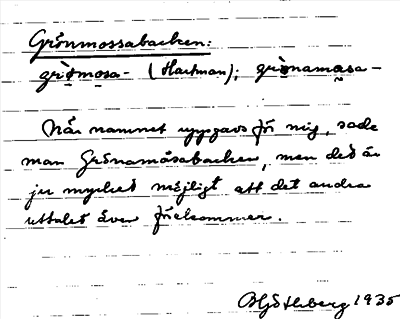 Grönmossabacken:
grö̀mosa- (Hartman); grö̀namasa-
När namnet uppgavs för mig, sade
man Grönamåsabacken, men det är
ju mycket möjligt att det andra
uttalet även förekommer.
1935